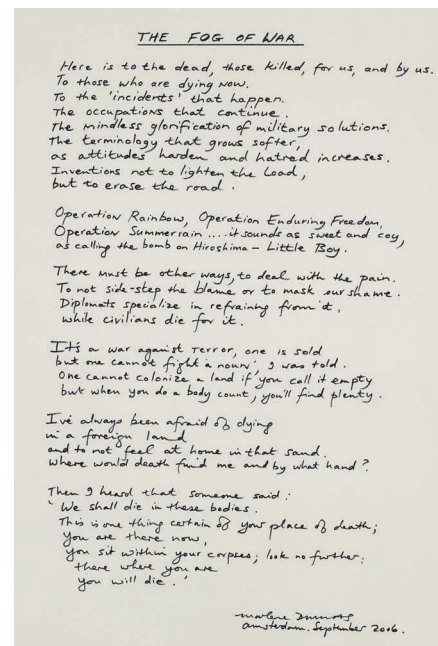 THE FOG OF WAR
Here is to the dead, those killed, for us, and by us.
To those who are dying now.
To the 'incidents' that happen.
The occupations that continue.
The mindless glorification of military solutions.
The terminology that grows softer,
as attitudes harden and hatred increases.
Inventions not to lighten the Load,
but to erase the road.
Operation Rainbow, Operation Enduring Freedom,
Operation Summerrain .... it sounds as sweet and coy,
as calling the bomb on Hiroshima – Little Boy.
There must be other ways, to deal with the pain.
To not side-step the blame or to mask our shame.
Diplomats specialize in refraining from it,
while civilians die for it.
It's a war against Terror, one is sold
but one cannot fight a noun, I was told.
One cannot colonize a land if you call it empty
but when you do a body count, you'll find plenty.
I've always been afraid of dying
in a foreign land
and to not feel at home in that sand.
Where would death find me and by what hand?
Then I heard that someone said:
'We shall die in these bodies.
This is one thing certain of your place of death;
you are there now,
you sit within your corpses; look no further:
there where you are
you will die.'
Marlene Dumas
Amsterdam. September 2006.